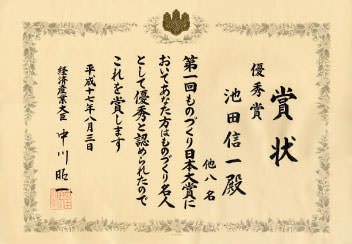 賞状
優秀賞
池田信一殿
他八名
第一回ものづくり日本大賞に
おいてあなた方はものづくり名人
として優秀と認められたので
これを賞します
平成十七年八月三日
経済産業大臣 中川昭一